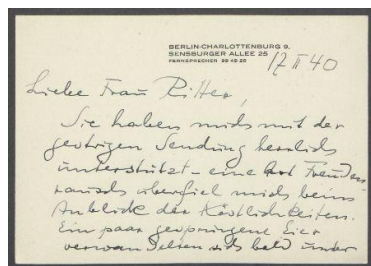 BERLIN-CHARLOTTENBURG 9,
SENSBURGER ALLEE 25
FERNSPRECHER 99 49 26
17 II 40
Liebe Frau Ritter,
Sie haben mich mit der
gestrigen Sendung herrlich
unterstützt – eine Freuden
rausch überfiel mich beim
Anblick der Köstlichkeiten.
Ein paar gesprungene Eier
verwandelten sich bald unter